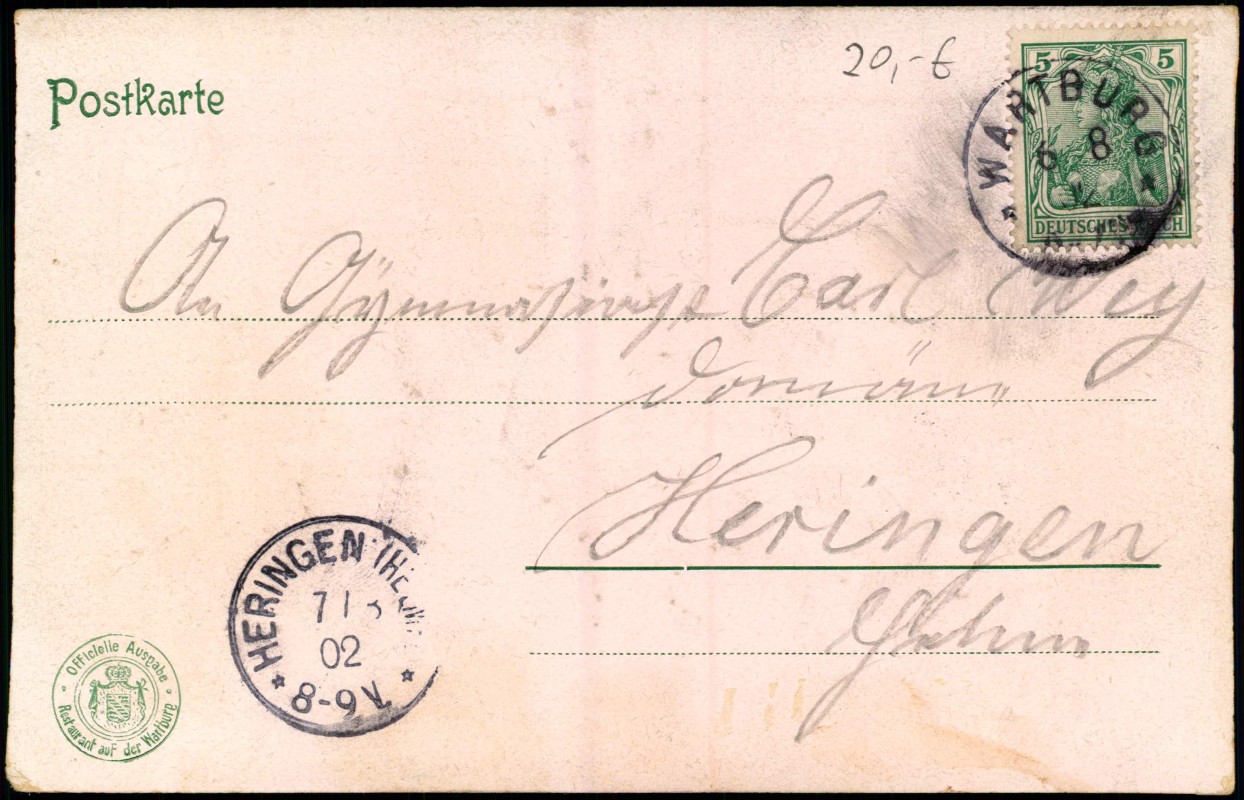 Postkarte
20,-€
5 5
WARTBURG
6 8
DEUTSCHES REICH
An Gymnasiast Carl Wey
Domäne
Heringen
HERINGEN
7/8
02
8-9V.
Officielle Ausgabe
Restaurant auf der Wartburg